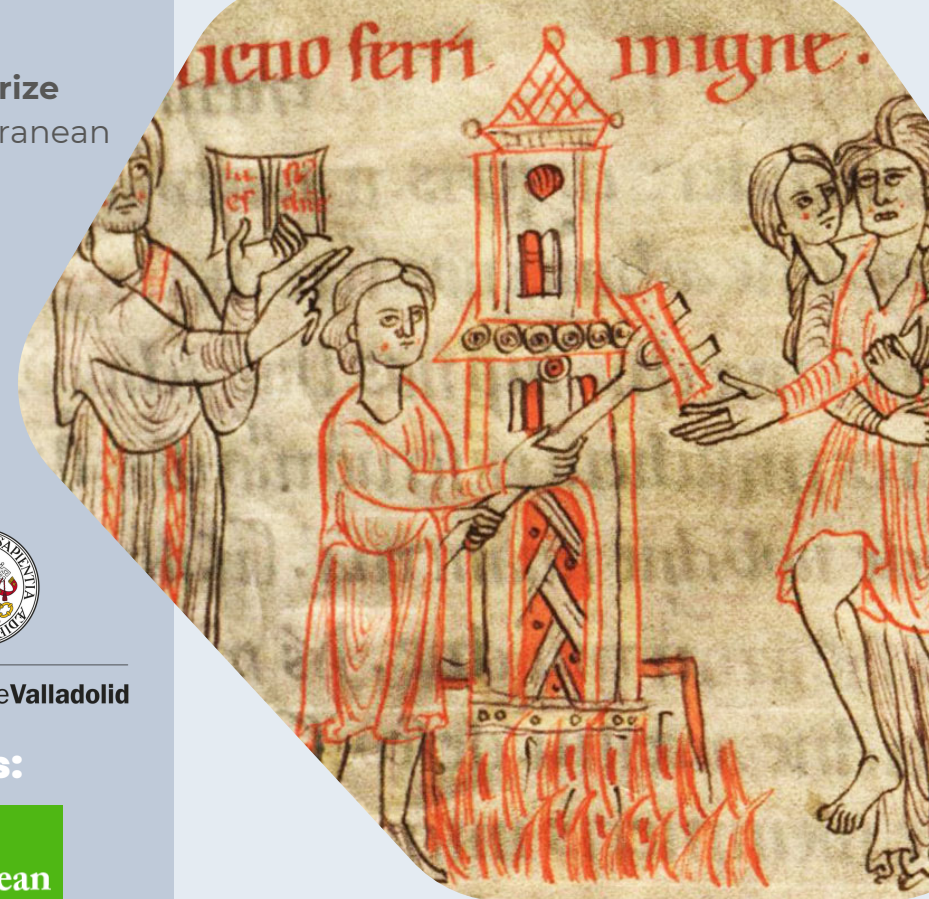 rize
ranean
ictio ferri in igne.
SAPIENTIA ÆDIF
eValladolid
s:
ean